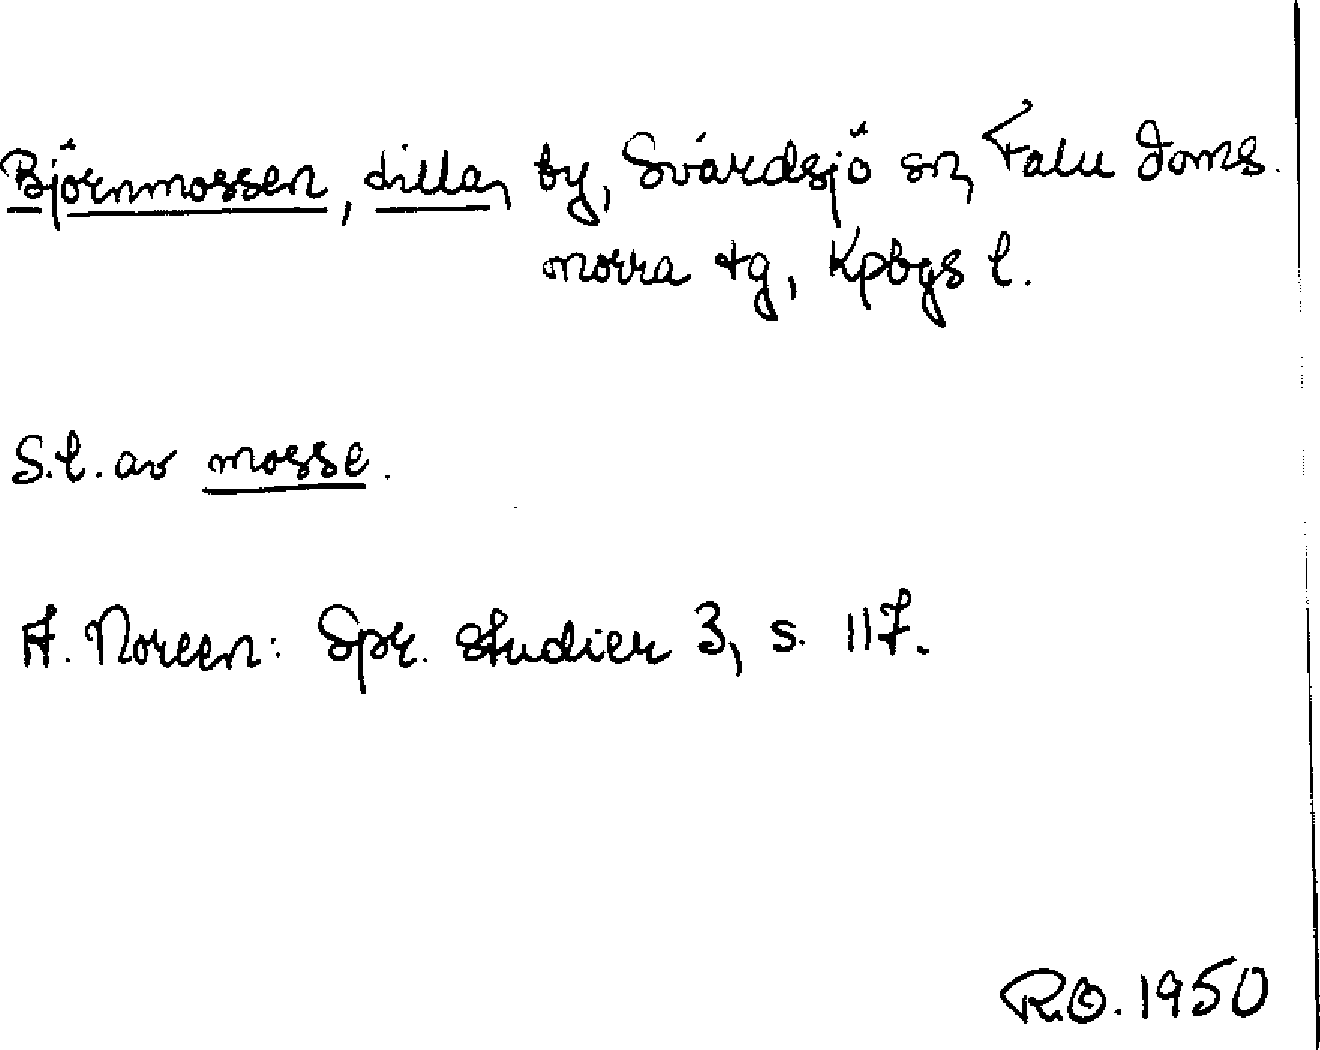 Björnmossen, Lilla, by, Svärdsjö sn, Falu Doms.
norra tg, Kpbgs l.
S.l. av mosse.
A. Noreen: Spr. studier 3, s. 117.
R.O. 1950